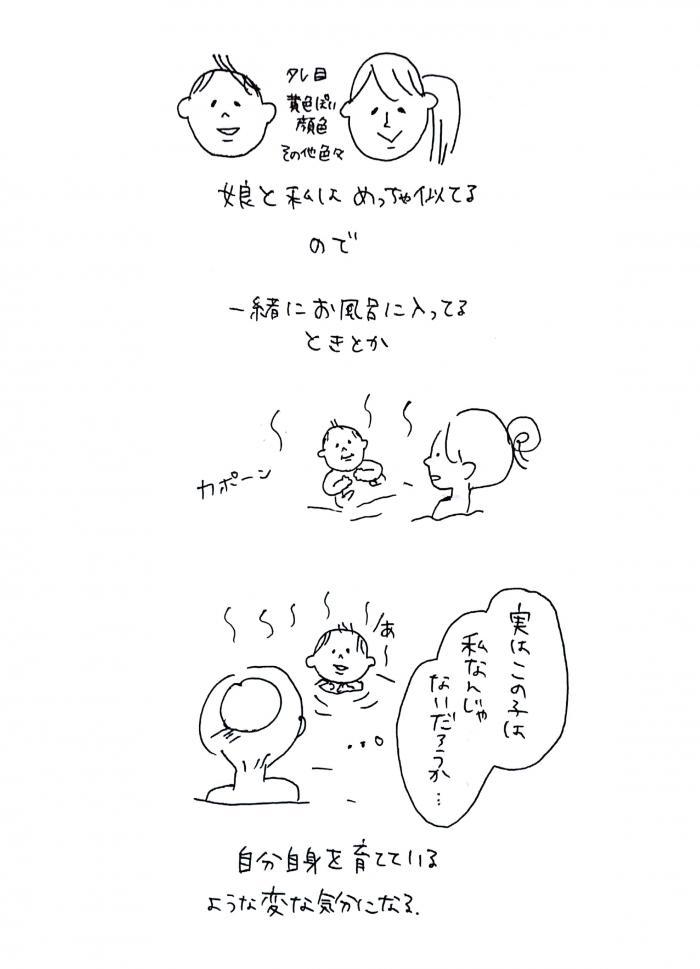 タレ目
黄色ぽい
顔色
その他色々
娘と私はめっちゃ似てる
ので
一緒にお風呂に入ってる
ときとか
カポーン
あ〜
実はこの子は
私なんじゃ
ないだろうか…
自分自身を育てている
ような変な気分になる.